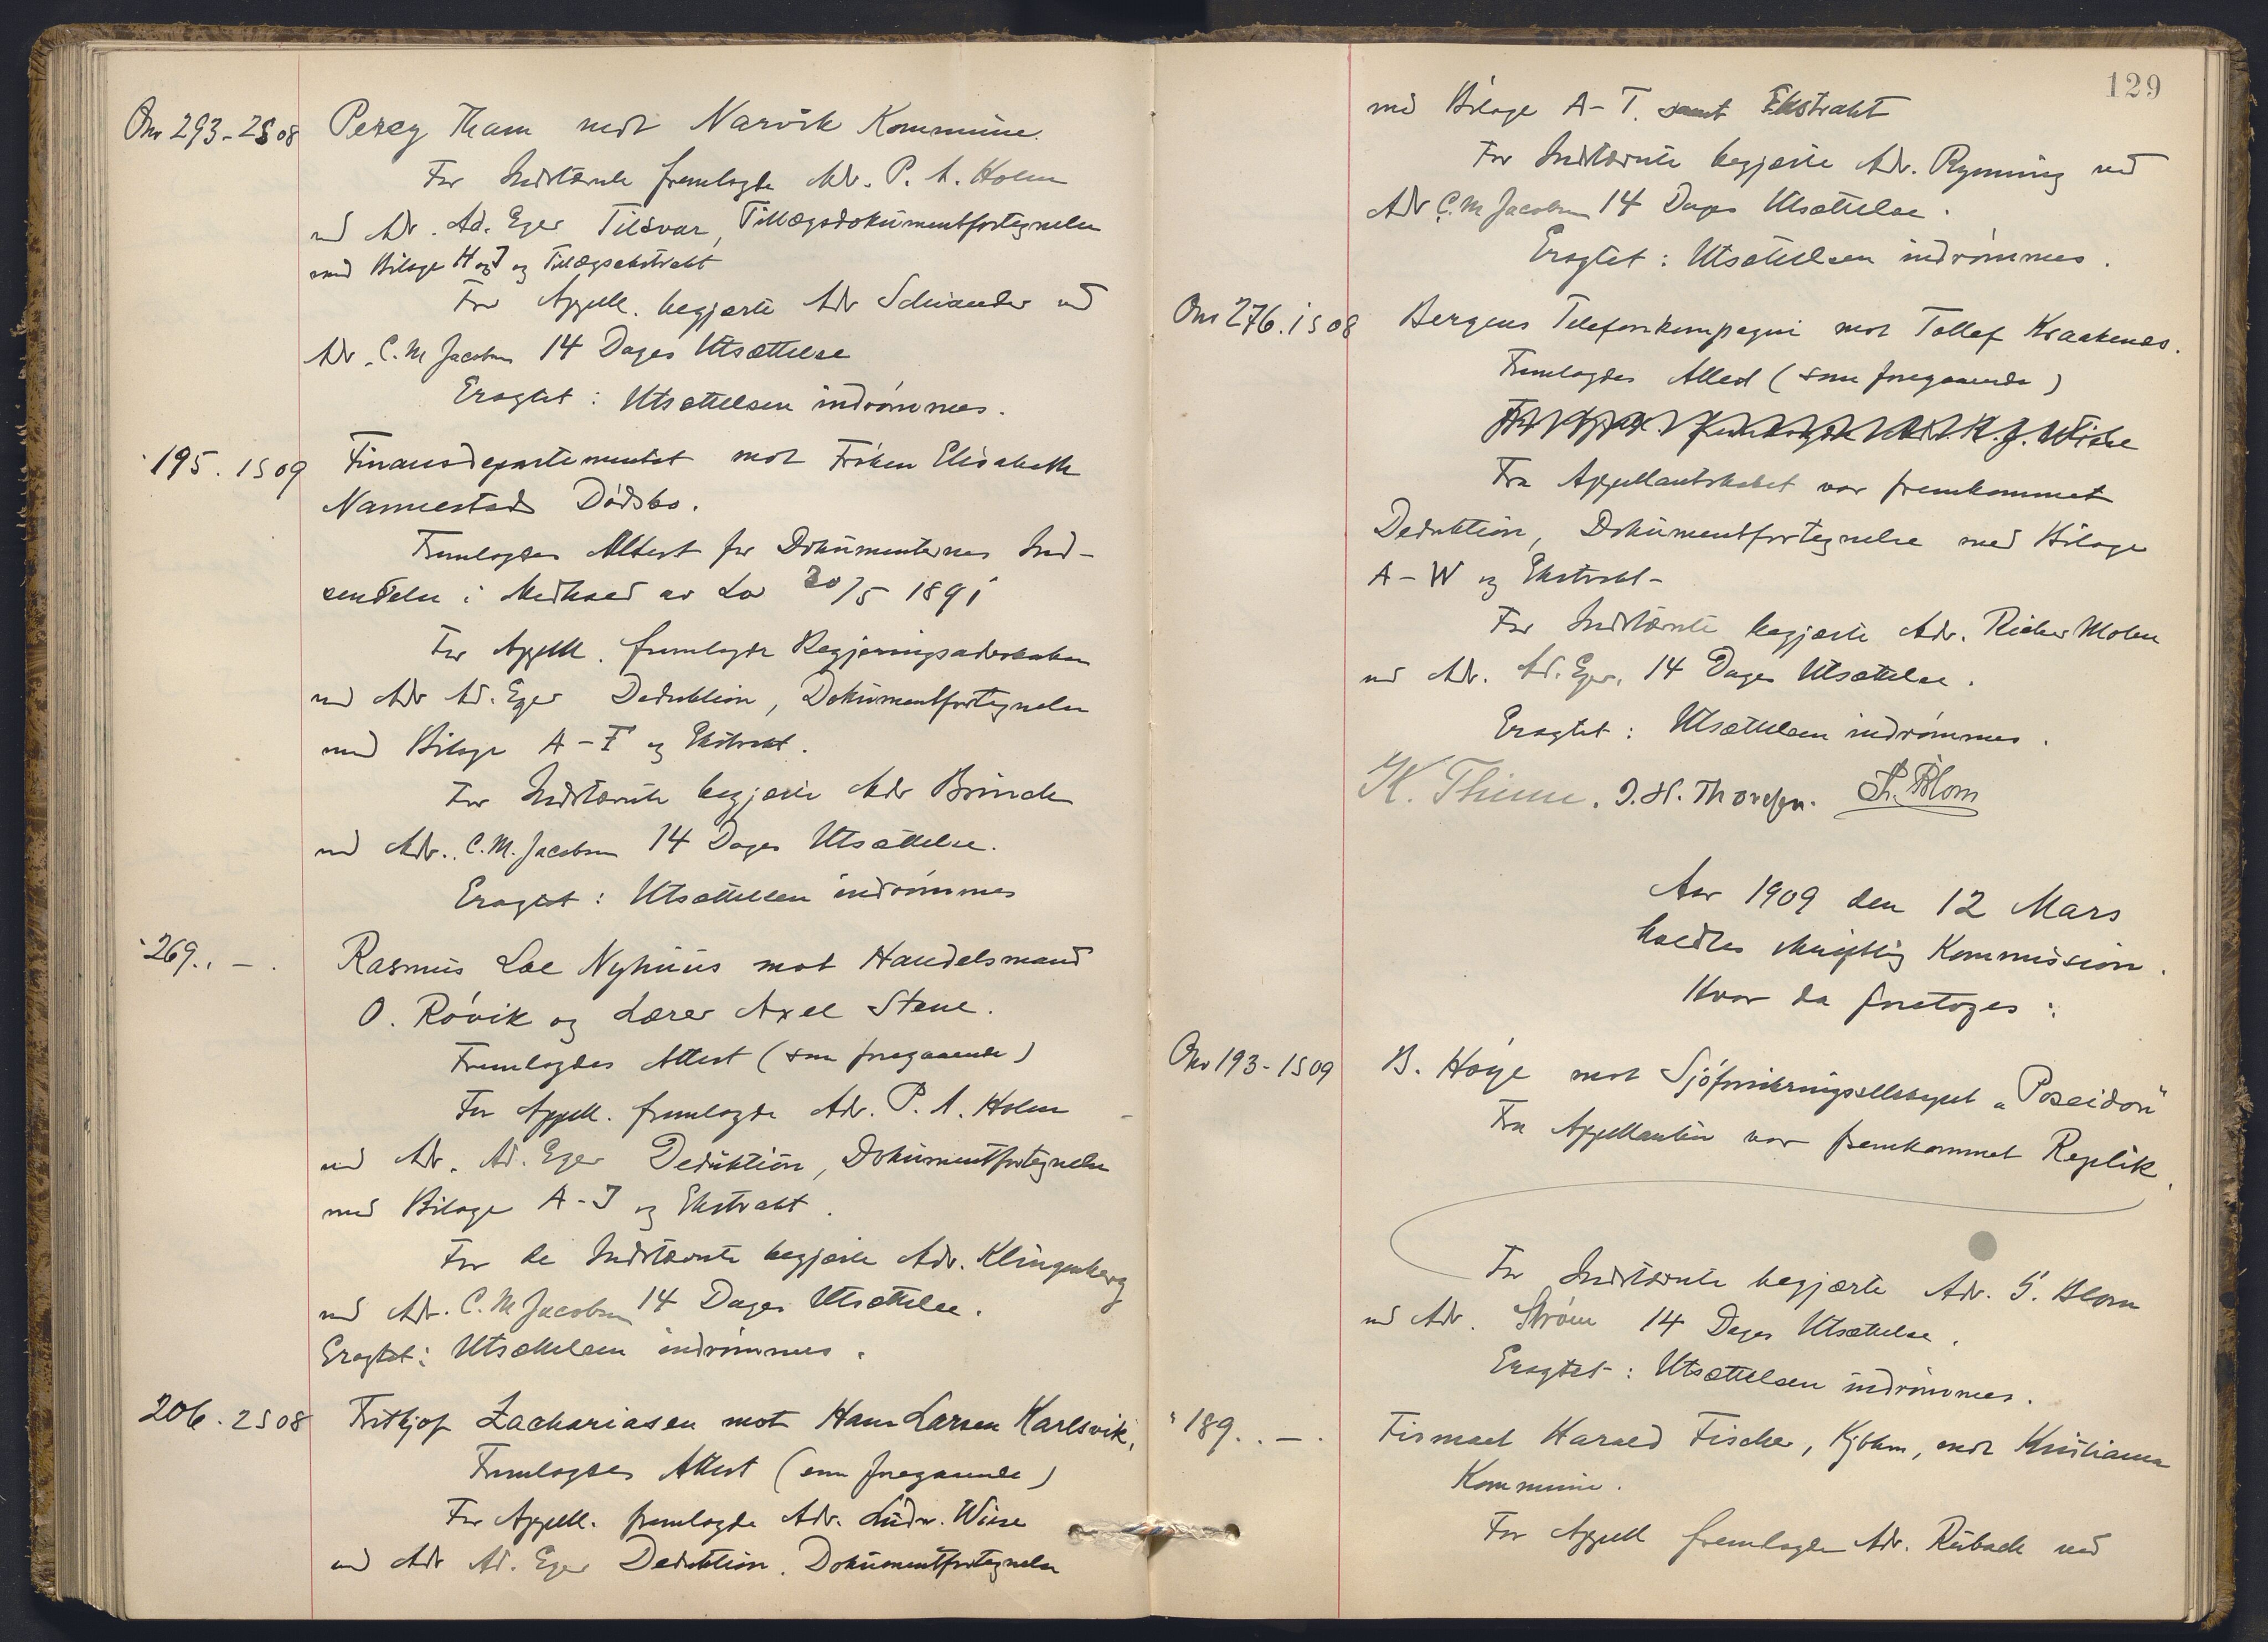 Om 293-2S08 Percy Tham mot Narvik Kommune.
For Indstævnte fremlagde Adv. P. A. Holm
ved Adv. Ad. Eger Tilsvar, Tillægsdokumentfortegnelse
med Bilage H og J og Tillægsekstrakt
For Appell. begjærte Adv Schiander ved
Adv. C. M Jacobsen 14 Dages Utsættelse
Eragtet: Utsættelsen indrømmes.
" 195. 1S09 Finansdepartementet mot Frøken Elisabeth
Nannestads Dødsbo.
Fremlagdes Attest for Dokumenternes Ind-
sendelse i Medhold av Lov 20/5 1891
For Appell. fremlagde Regjeringsadvokaten
ved Adv Ad. Eger Deduktion, Dokumentfortegnelse
med Bilage A-F og Ekstrakt.
For Indstævnte begjærte Adv Brinch
ved Adv. C. M. Jacobsen 14 Dages Utsættelse.
Eragtet: Utsættelsen indrømmes
" 269. . - . Rasmus Loe Nyhuus mot Handelsmand
O. Røvik og Lærer Axel Stene.
Fremlagdes Attest (som foregaaende)
For Appell. fremlagde Adv. P. A. Holm
ved Adv. Ad. Eger Deduktion, Dokumentfortegnelse
med Bilage A-J og Ekstrakt.
For de Indstævnte begjærte Adv. Klingenberg
ved Adv. C. M Jacobsen 14 Dages Utsættelse.
Eragtet: Utsættelsen indrømmes.
206. 2S08 Fritkjof Zachariasen mot Hans Larsen Karlsvik.
Fremlagdes Attest (som foregaaende)
For Appell. fremlagde Adv. Ludv. Wiese
ved Adv Ad. Eger Deduktion. Dokumentfortegnelse
129
med Bilage A-T. samt Ekstrakt
For Indstævnte begjærte Adv. Rynning ved
Adv C. M Jacobsen 14 Dages Utsættelse.
Eragtet: Utsættelsen indrømmes.
Om 276. 1S08 Bergens Telefonkompagni mot Tollef Kraakenes.
Fremlagdes Attest (som foregaaende)
For Appell. fremlagde Adv. K. J. Wiese
Fra Appellantskabet var fremkommet
Deduktion, Dokumentfortegnelse med Bilage
A-W og Ekstrakt-
For Indstævnte begjærte Adv. Rieber Mohn
ved Adv. Ad. Eger, 14 Dages Utsættelse.
Eragtet: Utsættelsen indrømmes.
K. Thinn. J. H. Thoresen. Th. Blom
Aar 1909 den 12 Mars
holdtes skriftlig Kommission.
Hvor da foretoges:
Om 193-1S09 B. Høye mot Sjøforsikringsselskapet "Poseidon"
Fra Appellanten var fremkommet Replik.
For Indstævnte begjærte Adv. G. Blom
ved Adv. Strøm 14 Dages Utsættelse.
Eragtet: Utsættelsen indrømmes.
" 189. . - . Firmaet Harald Fischer, Kjbhvn, mot Kristiania
Kommune.
For Appell fremlagde Adv. Rubach ved